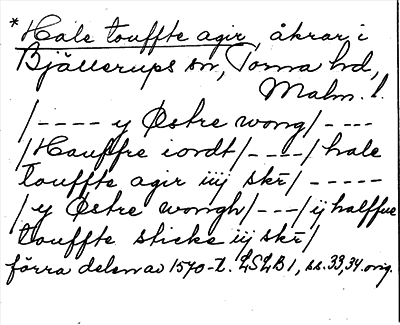 * Hale touffte agir, åkrar i
Bjällerups sn, Torna hd,
Malm. l.
/---- y Østre wong/----
/Hauffre iordt/----/hale
touffte agir iiij skr/-----
/y Østre wongh/---/ij halffue
touffte sticke iij skr/
förra delen av 1570-t. LSLB 1, ss. 33, 34 orig.